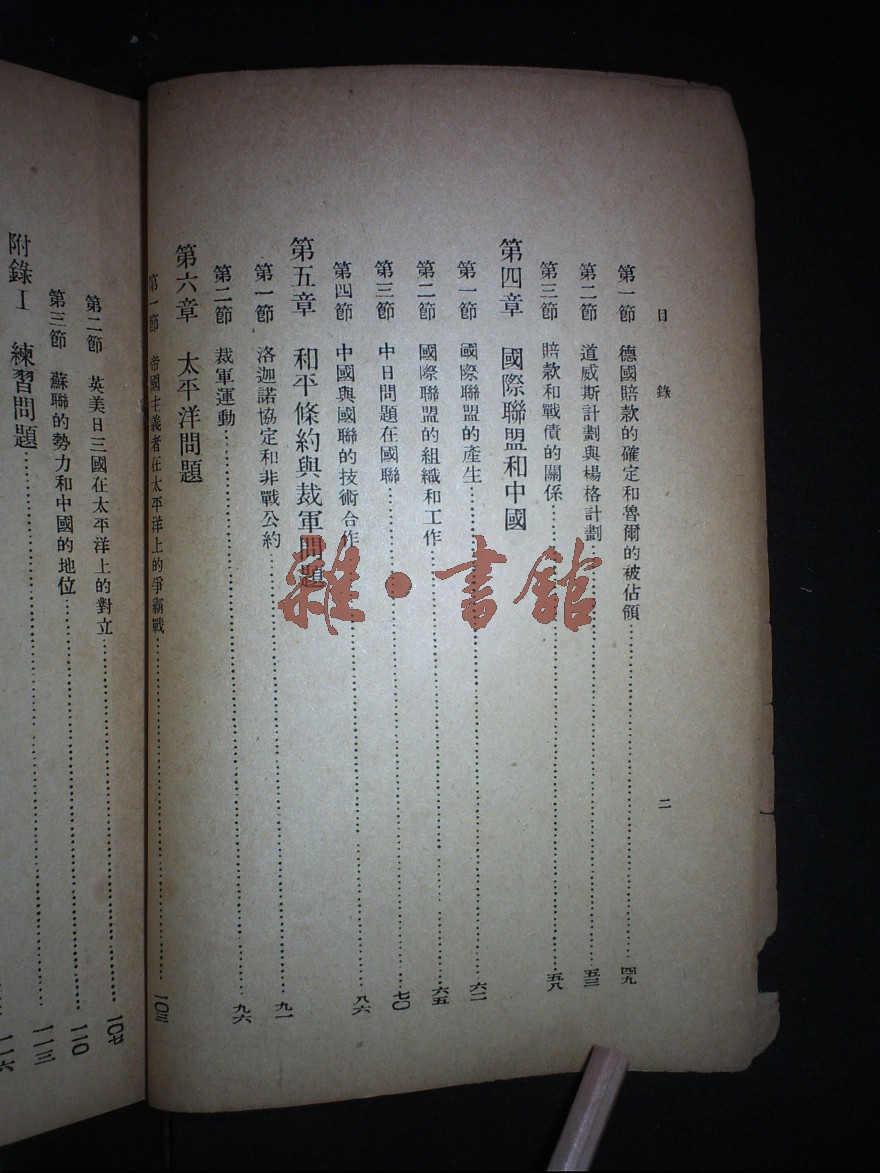 目錄
二
第一節 德國賠款的確定和魯爾的被佔領……四九
第二節 道威斯計劃與楊格計劃……五三
第三節 賠款和戰債的關係……五八
第四章 國際聯盟和中國
第一節 國際聯盟的產生……六二
第二節 國際聯盟的組織和工作……六五
第三節 中日問題在國聯……七〇
第四節 中國與國聯的技術合作……八六
第五章 和平條約與裁軍問題
第一節 洛迦諾協定和非戰公約……九一
第二節 裁軍運動……九六
第六章 太平洋問題
第一節 帝國主義者在太平洋上的爭霸戰……一〇三
第二節 英美日三國在太平洋上的對立……一〇七
第三節 蘇聯的勢力和中國的地位……一一〇
附錄I 練習問題……一一三
一一六
雜·書館